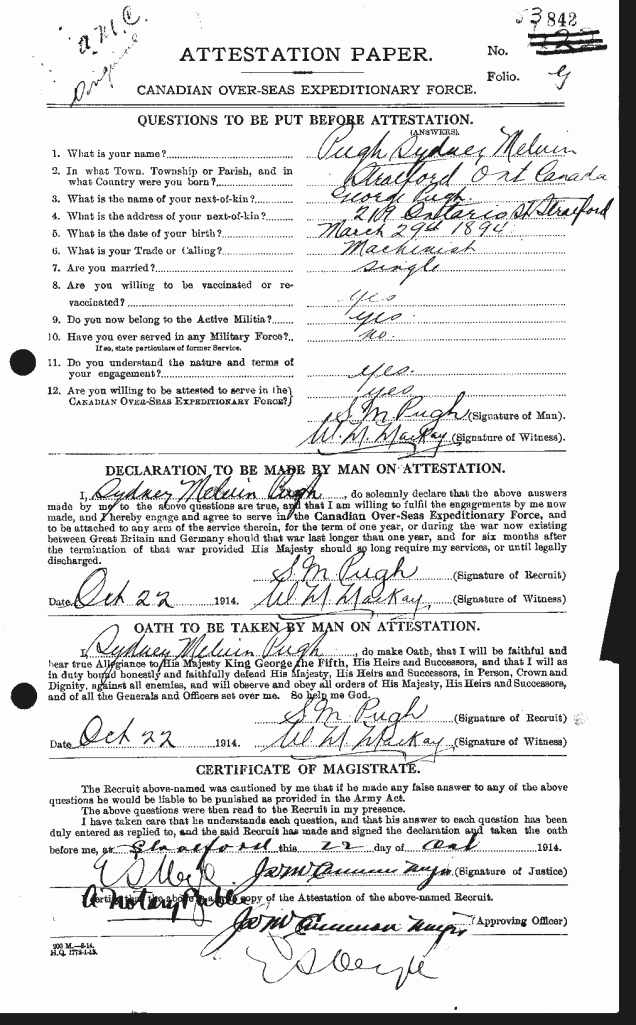 53842
A.M.C.
ATTESTATION PAPER.
No.
Folio.
CANADIAN OVER-SEAS EXPEDITIONARY FORCE.
QUESTIONS TO BE PUT BEFORE ATTESTATION.
(ANSWERS).
1. What is your name? Pugh Sydney Melvin
2. In what Town, Township or Parish, and in Stratford Ont Canada
what Country were you born?
3. What is the name of your next-of-kin? George Pugh
4. What is the address of your next-of-kin? 219 Ontario St Stratford
5. What is the date of your birth? March 29th 1894
6. What is your Trade or Calling? Machinist
7. Are you married? single
8. Are you willing to be vaccinated or re-
vaccinated? yes
9. Do you now belong to the Active Militia? yes.
10. Have you ever served in any Military Force? no.
If so, state particulars of former Service.
11. Do you understand the nature and terms of
your engagement? yes.
12. Are you willing to be attested to serve in the yes
CANADIAN OVER-SEAS EXPEDITIONARY FORCE?
S M Pugh (Signature of Man).
W. M. MacKay (Signature of Witness).
DECLARATION TO BE MADE BY MAN ON ATTESTATION.
I, Sydney Melvin Pugh, do solemnly declare that the above answers
made by me to the above questions are true, and that I am willing to fulfil the engagements by me now
made, and I hereby engage and agree to serve in the Canadian Over-Seas Expeditionary Force, and
to be attached to any arm of the service therein, for the term of one year, or during the war now existing
between Great Britain and Germany should that war last longer than one year, and for six months after
the termination of that war provided His Majesty should so long require my services, or until legally
discharged.
S M Pugh (Signature of Recruit)
Date Oct 22 1914. W. M. MacKay, (Signature of Witness)
OATH TO BE TAKEN BY MAN ON ATTESTATION.
I, Sydney Melvin Pugh, do make Oath, that I will be faithful and
bear true Allegiance to His Majesty King George the Fifth, His Heirs and Successors, and that I will as
in duty bound honestly and faithfully defend His Majesty, His Heirs and Successors, in Person, Crown and
Dignity, against all enemies, and will observe and obey all orders of His Majesty, His Heirs and Successors,
and of all the Generals and Officers set over me. So help me God.
S M Pugh (Signature of Recruit)
Date Oct 22 1914. W. M. MacKay (Signature of Witness)
CERTIFICATE OF MAGISTRATE.
The Recruit above-named was cautioned by me that if he made any false answer to any of the above
questions he would be liable to be punished as provided in the Army Act.
The above questions were then read to the Recruit in my presence.
I have taken care that he understands each question, and that his answer to each question has been
duly entered as replied to, and the said Recruit has made and signed the declaration and taken the oath
before me, at Stratford this 22 day of Oct 1914.
(Signature of Justice)
A Notary Public
I certify that the above is a true copy of the Attestation of the above-named Recruit.
(Approving Officer)
200 M.—8-14.
H.Q. 1772-1-13.